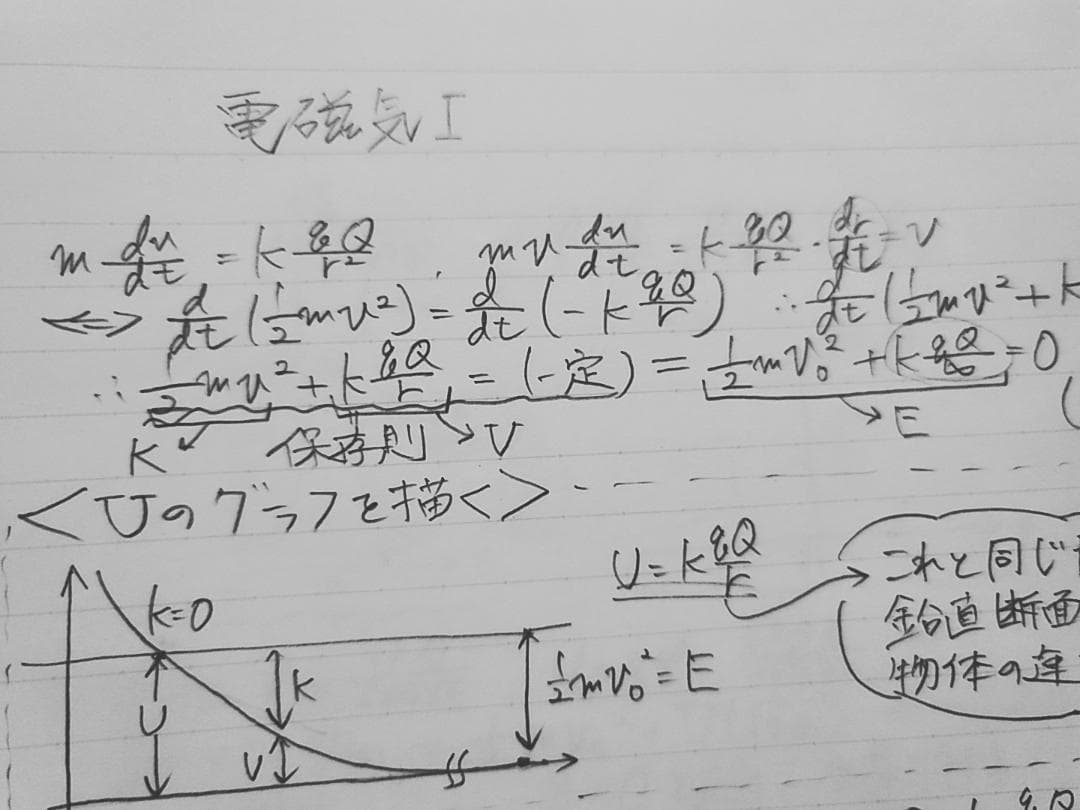 電磁気I
m dv/dt = k qQ/r² , mv dv/dt = k qQ/r² · dr/dt = v
⟺ d/dt (1/2 mv²) = d/dt (-k qQ/r) ∴ d/dt (1/2 mv² + k
∴ 1/2 mv² + k qQ/r = (一定) = 1/2 mv₀² + k qQ/∞ = 0
K 保存則 U E
<Uのグラフを描く>
U = k qQ/r
これと同じ
鉛直断面
物体の運
K=0
K
1/2 mv₀² = E
U
U
qQ